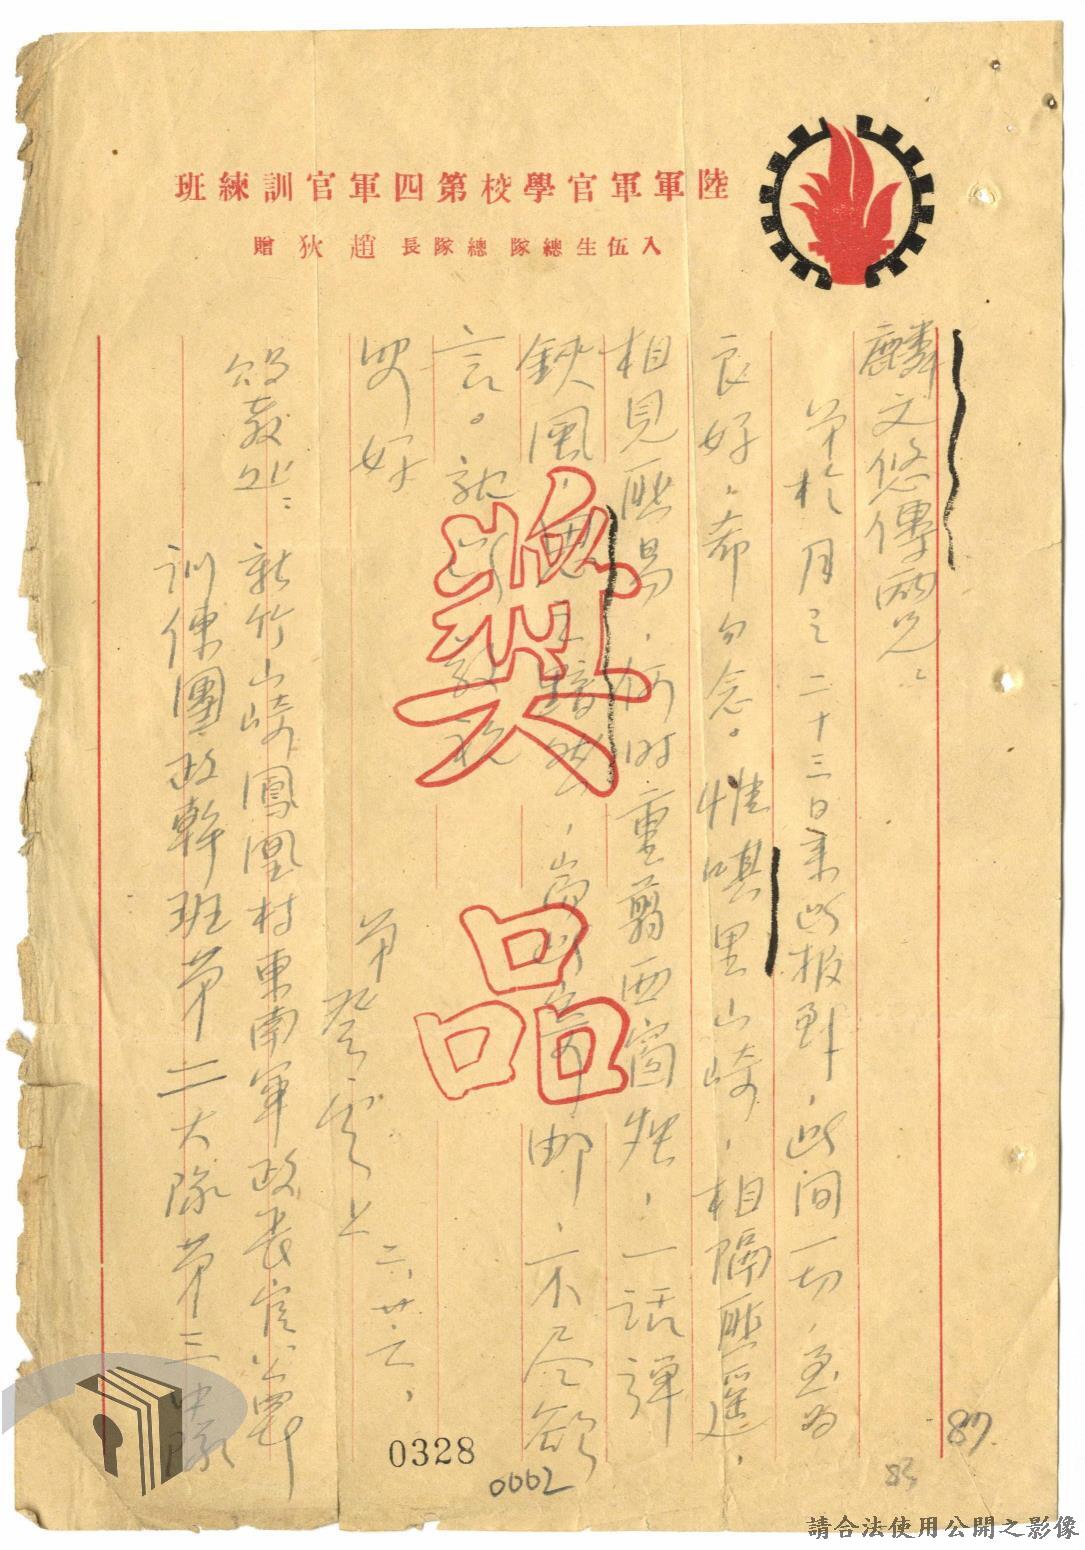 陸軍軍官學校第四軍官訓練班
入伍生總隊 總隊長 趙 狄 贈
獎品
麟文悠傳兩兄：
弟於月之二十三日来此报到，此间一切，至為
良好，希勿念。惟嘆里山崎，相隔匪遥，
相見匪易，何时重剪西窗烛，一話彈
鋏風，思之黯然，尚此寄邮，不尽欲
言。祝此 敬祝
安好
弟 癸雲上
二，廿六，
賜教处：新竹山崎鳳凰村東南軍政長官公署
訓練團政幹班第二大隊第三中隊
0328
0062
83
87
請合法使用公開之影像